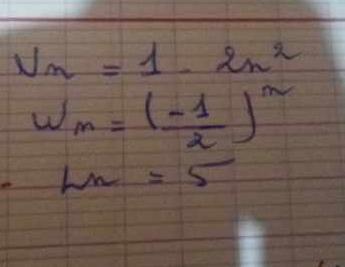 Vn = 1 - 2n²
Wn = (-1/2)^n
tn = 5